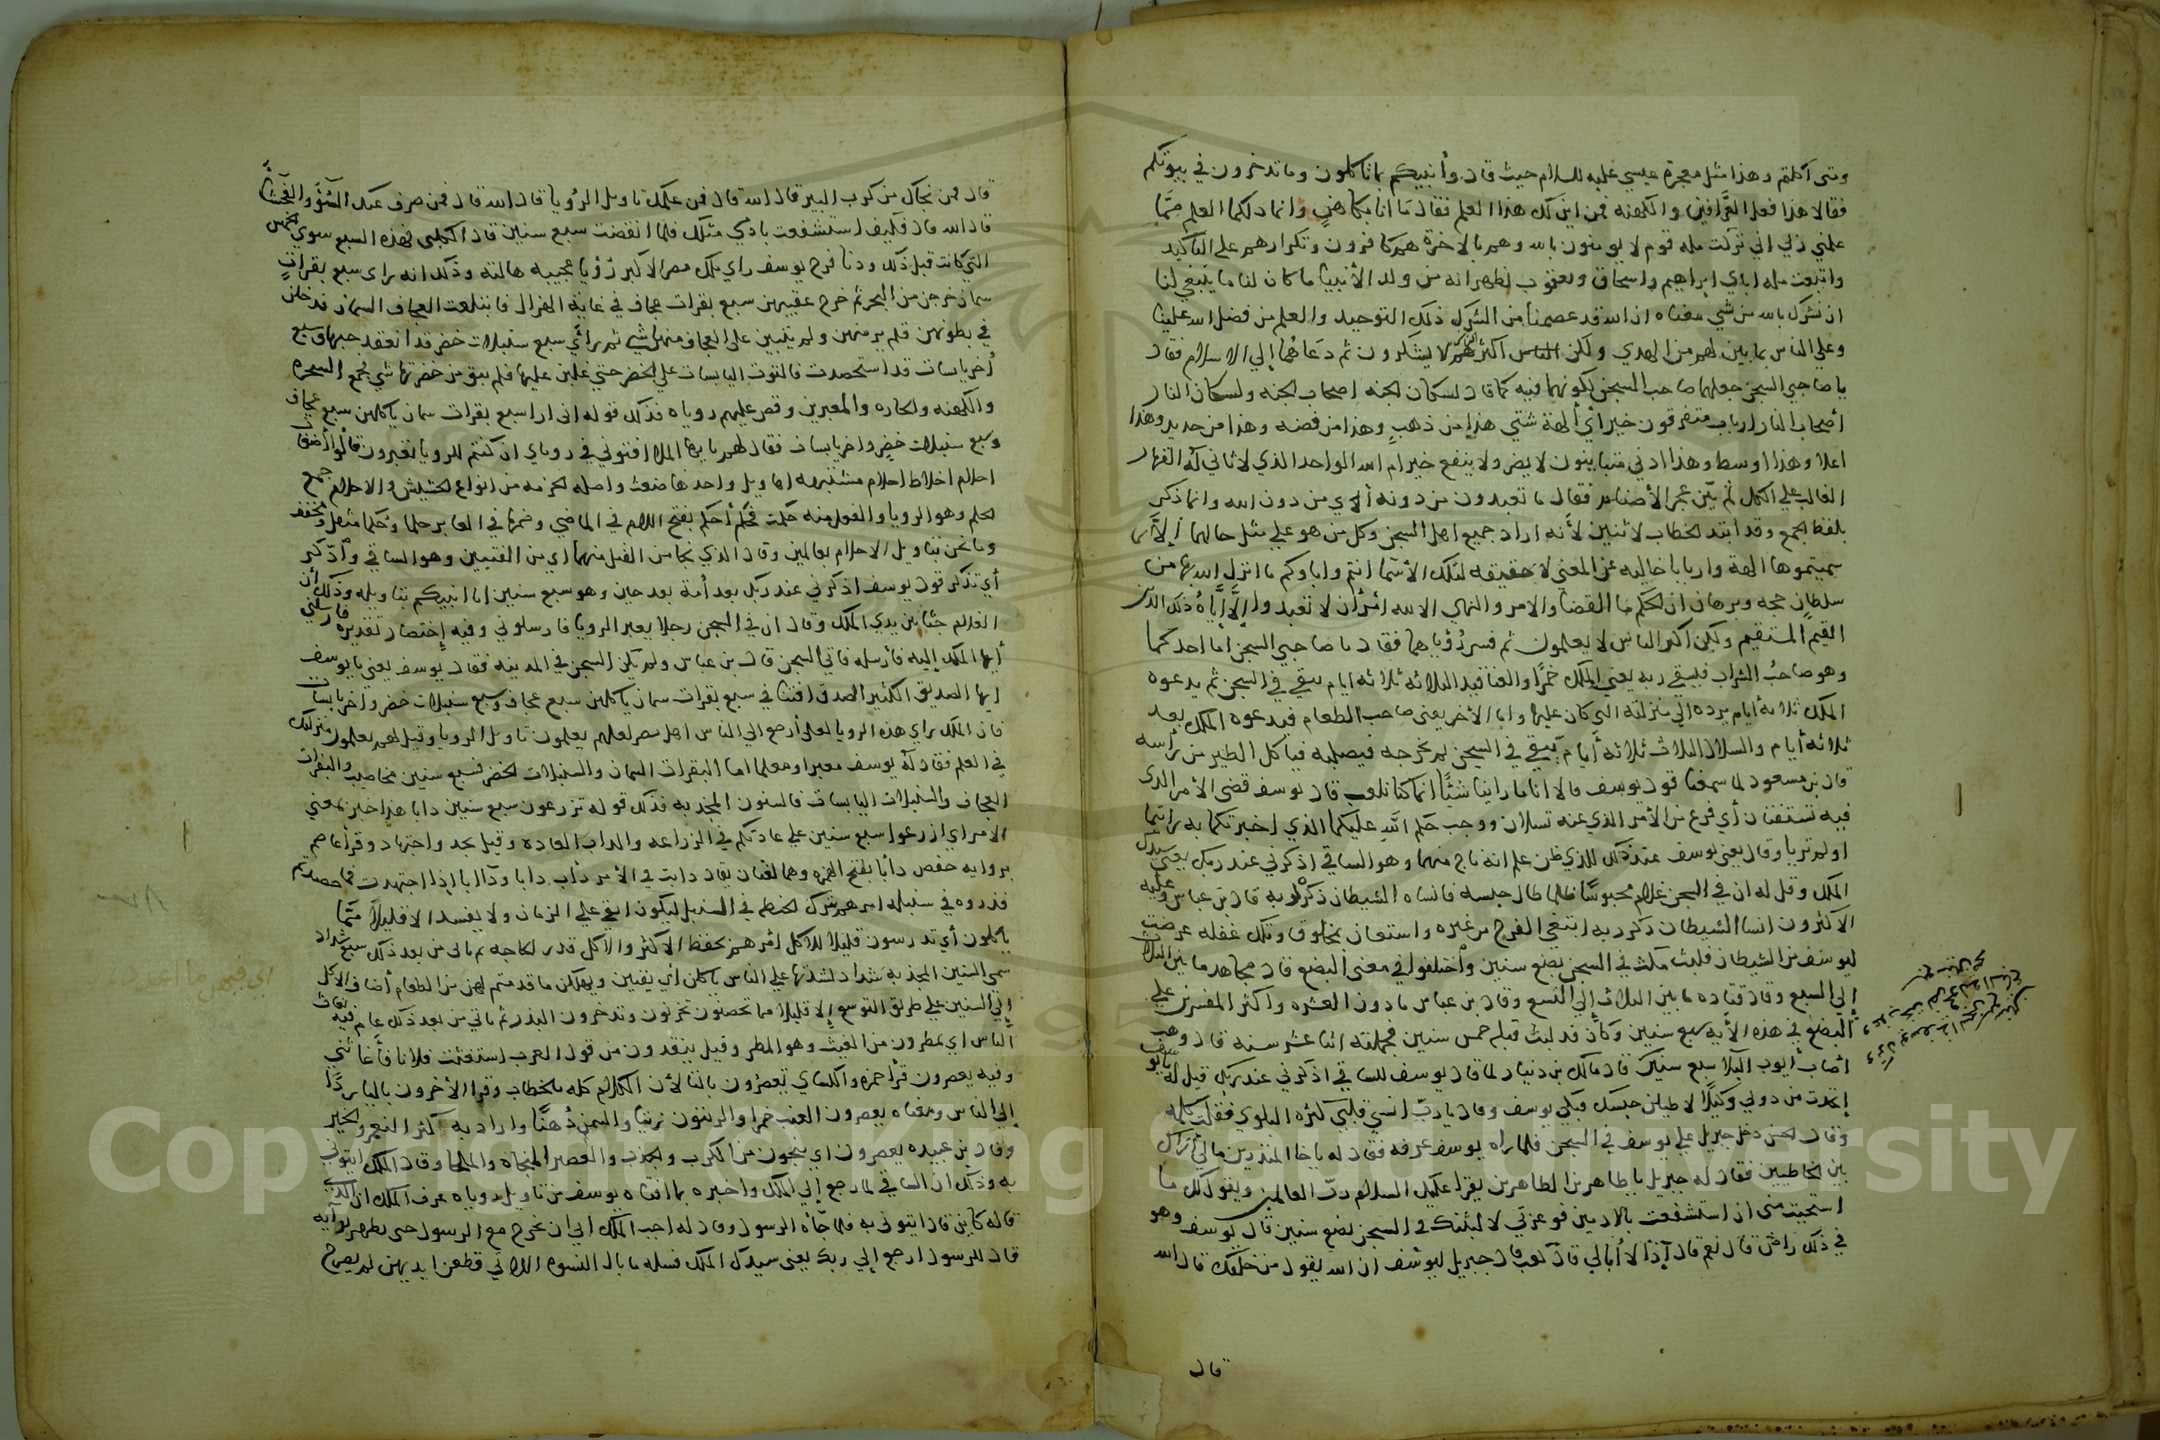 ومتى آكلتم وهذا مثل معجزة عيسى عليه السلام حيث قال وأنبيكم بما تاكلون وما تدخرون في بيوتكم
فقالا هذا فعل العرافين والكهنة فمن اين لك هذا العلم فقال ما انا بكاهن وانما ذلكما العلم مما
علمني ربي اني تركت ملة قوم لا يومنون بالله وهم بالاخرة هم كافرون وتكرارهم على التاكيد
واتبعت ملة اباي ابراهيم واسحاق ويعقوب اظهر انه من ولد الأنبيا ما كان لنا ما ينبغي لنا
ان نشرك بالله من شي معناه ان الله قد عصمنا من الشرك ذلك التوحيد والعلم من فضل الله علينا
وعلي الناس بما بين لهم من الهدي ولكن اكثر الناس لا يشكرون ثم دعاهما إلي الاسلام فقال
يا صاحبي السجن جعلهما صاحب السجن لكونهما فيه كما قال لسكان الجنة اصحاب الجنة ولسكان النار
أصحاب النار ارباب متفرقون خير أي آلهة شتي هذا من ذهب وهذا من فضة وهذا من حديد وهذا
اعلا وهذا اوسط وهذا ادني متباينون لا يضر ولا ينفع خير ام الله الواحد الذي لا ثاني له القهار
الغالب علي الكل ثم بين عجز الأصنام فقال ما تعبدون من دونه أي من دون الله وانما ذكر
بلفظ الجمع وقد ابتدا الخطاب لاثنين لأنه اراد جميع اهل السجن وكل من هو علي مثل حالهما إلا أسما
سميتموها الهة واربابا خالية عن المعني لا حقيقة لتلك الأسما انتم واباوكم ما انزل الله بها من
سلطان حجة وبرهان ان الحكم ما القضا والامر والنهي الا لله امر أن لا تعبدوا إلا إياه ذلك الدين
القيم المستقيم ولكن اكثر الناس لا يعلمون ثم فسر رؤياهما فقال يا صاحبي السجن اما احدكما
وهو صاحب الشراب فيسقي ربه يعني الملك خمرا والعناقيد الثلاثة ثلاثة ايام يبقي في السجن ثم يدعوه
الملك ثلاثة أيام يرده إلي منزلته التي كان عليها واما الاخر يعني صاحب الطعام فيدعوه الملك بعد
ثلاثة أيام والسلال الثلاث ثلاثة أيام يبقي في السجن ثم يخرجه فيصلبه فياكل الطير من رأسه
قال بن مسعود لما سمعا قول يوسف قالا انا ما راينا شئا انما كنا نلعب قال يوسف قضي الأمر الذي
فيه تستفتيان أي فرغ من الأمر الذي عنه تسلان ووجب حكم الله عليكما الذي اخبرتكما به رايتما
اولم تريا وقال يعني يوسف عند ذلك للذي ظن علم انه ناج منهما وهو الساقي اذكرني عند ربك يعني سيدك
الملك وقل له ان في السجن غلام محبوسا ظلما طال حبسه فانساه الشيطان ذكر ربه قال بن عباس وعليه
الاكثرون انسا الشيطان ذكر ربه ابتغي الفرج من غيره واستعان بمخلوق وتلك غفلة عرضت
ليوسف من الشيطان فلبث مكث في السجن بضع سنين واختلفوا في معني البضع قال مجاهد ما بين الثلاث
إلي السبع وقال قتادة ما بين الثلاث إلي التسع وقال بن عباس ما دون العشرة واكثر المفسرين علي
البضع في هذه الأية سبع سنين وكان قد لبث قبله خمس سنين فجملته اثنا عشر سنة قال وهب
اصاب أيوب البلا سبع سنين قال مالك بن دينار لما قال يوسف للساقي اذكرني عند ربك قيل له يا يوسف
إتخذت من دوني وكيلا لاطيلن حبسك فبكي يوسف وقال يا رب انسي قلبي كثرة البلوي فقلت كلمة
وقال الحسن دخل جبريل علي يوسف في السجن فلما راه يوسف عرفه فقال له يا اخا المنذرين مالي أراك
بين الخاطيين فقال له جبريل يا طاهر بن الطاهرين يقرا عليك السلام رب العالمين ويقول لك ما
استحيت مني ان استشفعت بالادميين فوعزتي لالبثنك في السجن بضع سنين قال يوسف وهو
في ذلك راض قال نعم قال إذا لا أبالي قال كعب قال جبريل ليوسف ان الله يقول من خلقك قال الله
قال
قال فمن نجاك من كرب البير قال الله قال فمن علمك تاويل الرؤيا قال الله قال فمن صرف عنك السوء والفحشا
قال الله قال فكيف استشفعت بادمي مثلك فلما انقضت سبع سنين قال الكلبي فهذه السبع سوي الخمس
التي كانت قبل ذلك ودنا فرج يوسف راي ملك مصر الاكبر رؤيا عجيبة هالته وذلك انه راي سبع بقرات
سمان خرجن من البحر ثم خرج عقيبهن سبع بقرات عجاف في غاية الهزال فابتلعت العجاف السمان فدخلن
في بطونهن فلم ير منهن ولم يتبين علي العجاف منهن شي ثم رأي سبع سنبلات خضر قد انعقد حبها وسبع
أخر يابسات قد استحصدت فالتوت اليابسات علي الخضر حتي غلبن عليها فلم يبق من خضرتها شي فجمع السحرة
والكهنة والحازة والمعبرين وقص عليهم روياه فذلك قوله اني ارا سبع بقرات سمان ياكلهن سبع عجاف
وسبع سنبلات خضر واخر يابسات فقال لهم يا ايها الملا افتوني في روياي ان كنتم للرويا تعبرون قالوا أضغاث
احلام اخلاط احلام مشتبهة اهاويل واحدها ضغث واصله الحزمة من انواع الحشيش والاحلام جمع
الحلم وهو الرويا والفعل منه حلمت احلم بفتح اللام في الماضي وضمها في الغابر حلما وحلما مثقل ومخفف
وما نحن بتاويل الاحلام بعالمين وقال الذي نجا من القتل منهما اي من الفتيين وهو الساقي وادكر
أي تذكر قول يوسف اذكرني عند ربك بعد أمة بعد حين وهو سبع سنين انا انبيكم بتاويله وذلك أن
الغلام جثا بين يدي الملك وقال ان في السجن رجلا يعبر الرويا فارسلوني وفيه إختصار تقديره فارسلني
أيها الملك إليه فأرسله فاتي السجن قال بن عباس ولم يكن السجن في المدينة فقال يوسف يعني يا يوسف
ايها الصديق الكثير الصدق افتنا في سبع بقرات سمان ياكلهن سبع عجاف وسبع سنبلات خضر واخر يابسات
فان الملك راي هذه الرويا لعلي أرجع الي الناس اهل مصر لعلهم يعلمون تاويل الرويا وقيل لعلهم يعلمون منزلتك
في العلم فقال له يوسف معبرا ومعلما اما البقرات السمان والسنبلات الخضر فسبع سنين مخاصيب والبقرات
العجاف والسنبلات اليابسات فالسنون المجدبة فذلك قوله تزرعون سبع سنين دابا هذا خبر بمعني
الامر اي ازرعوا سبع سنين علي عادتكم في الزراعة والداب العادة وقيل بجد واجتهاد وقرأ عاصم
برواية حفص دأبا بفتح الهمزة وهما لغتان يقال دابت في الأمر دأب دابا ودأبا إذا اجتهدت فما حصدتم
فذروه في سنبله امرهم بترك الحنطة في السنبل ليكون ابقي علي الزمان ولا يفسد الا قليلا مما
ياكلون أي تدرسون قليلا للاكل امرهم بحفظ الاكثر والاكل قدر الحاجة ثم ياتي من بعد ذلك سبع شداد
سمي السنين المجدبة شدادا لشدتها علي الناس ياكلن اي يفنين ويهلكن ما قدمتم لهن من الطعام أضاف الاكل
إلي السنين علي طريق التوسع إلا قليلا مما تحصنون تخزنون وتدخرون للبذر ثم ياتي من بعد ذلك عام فيه يغاث
الناس اي يمطرون من الغيث وهو المطر وقيل ينقذون من قول العرب استغثت فلانا فأغاثني
وفيه يعصرون قرأ حمزة والكساي تعصرون بالتا لأن الكلام كله بالخطاب وقرا الأخرون باليا ردا
إلي الناس ومعناه يعصرون العنب خمرا والزيتون زيتا والسمسم دهنا واراد به كثرة النعم والخير
وقال بن عبيده يعصرون اي ينجون من الكرب والجدب والعصر المنجاة والملجا وقال الملك ايتوني
به وذلك ان الساقي لما رجع إلي الملك واخبره بما افتاه يوسف من تاويل روياه عرف الملك ان الذي
قاله كاين قال ايتوني به فلما جاه الرسول وقال له اجب الملك ابي ان يخرج مع الرسول حتي يظهر برآته
قال للرسول ارجع إلي ربك يعني سيدك الملك فسله ما بال النسوة اللاتي قطعن ايديهن لم يصرح
Copyright © King Saud University